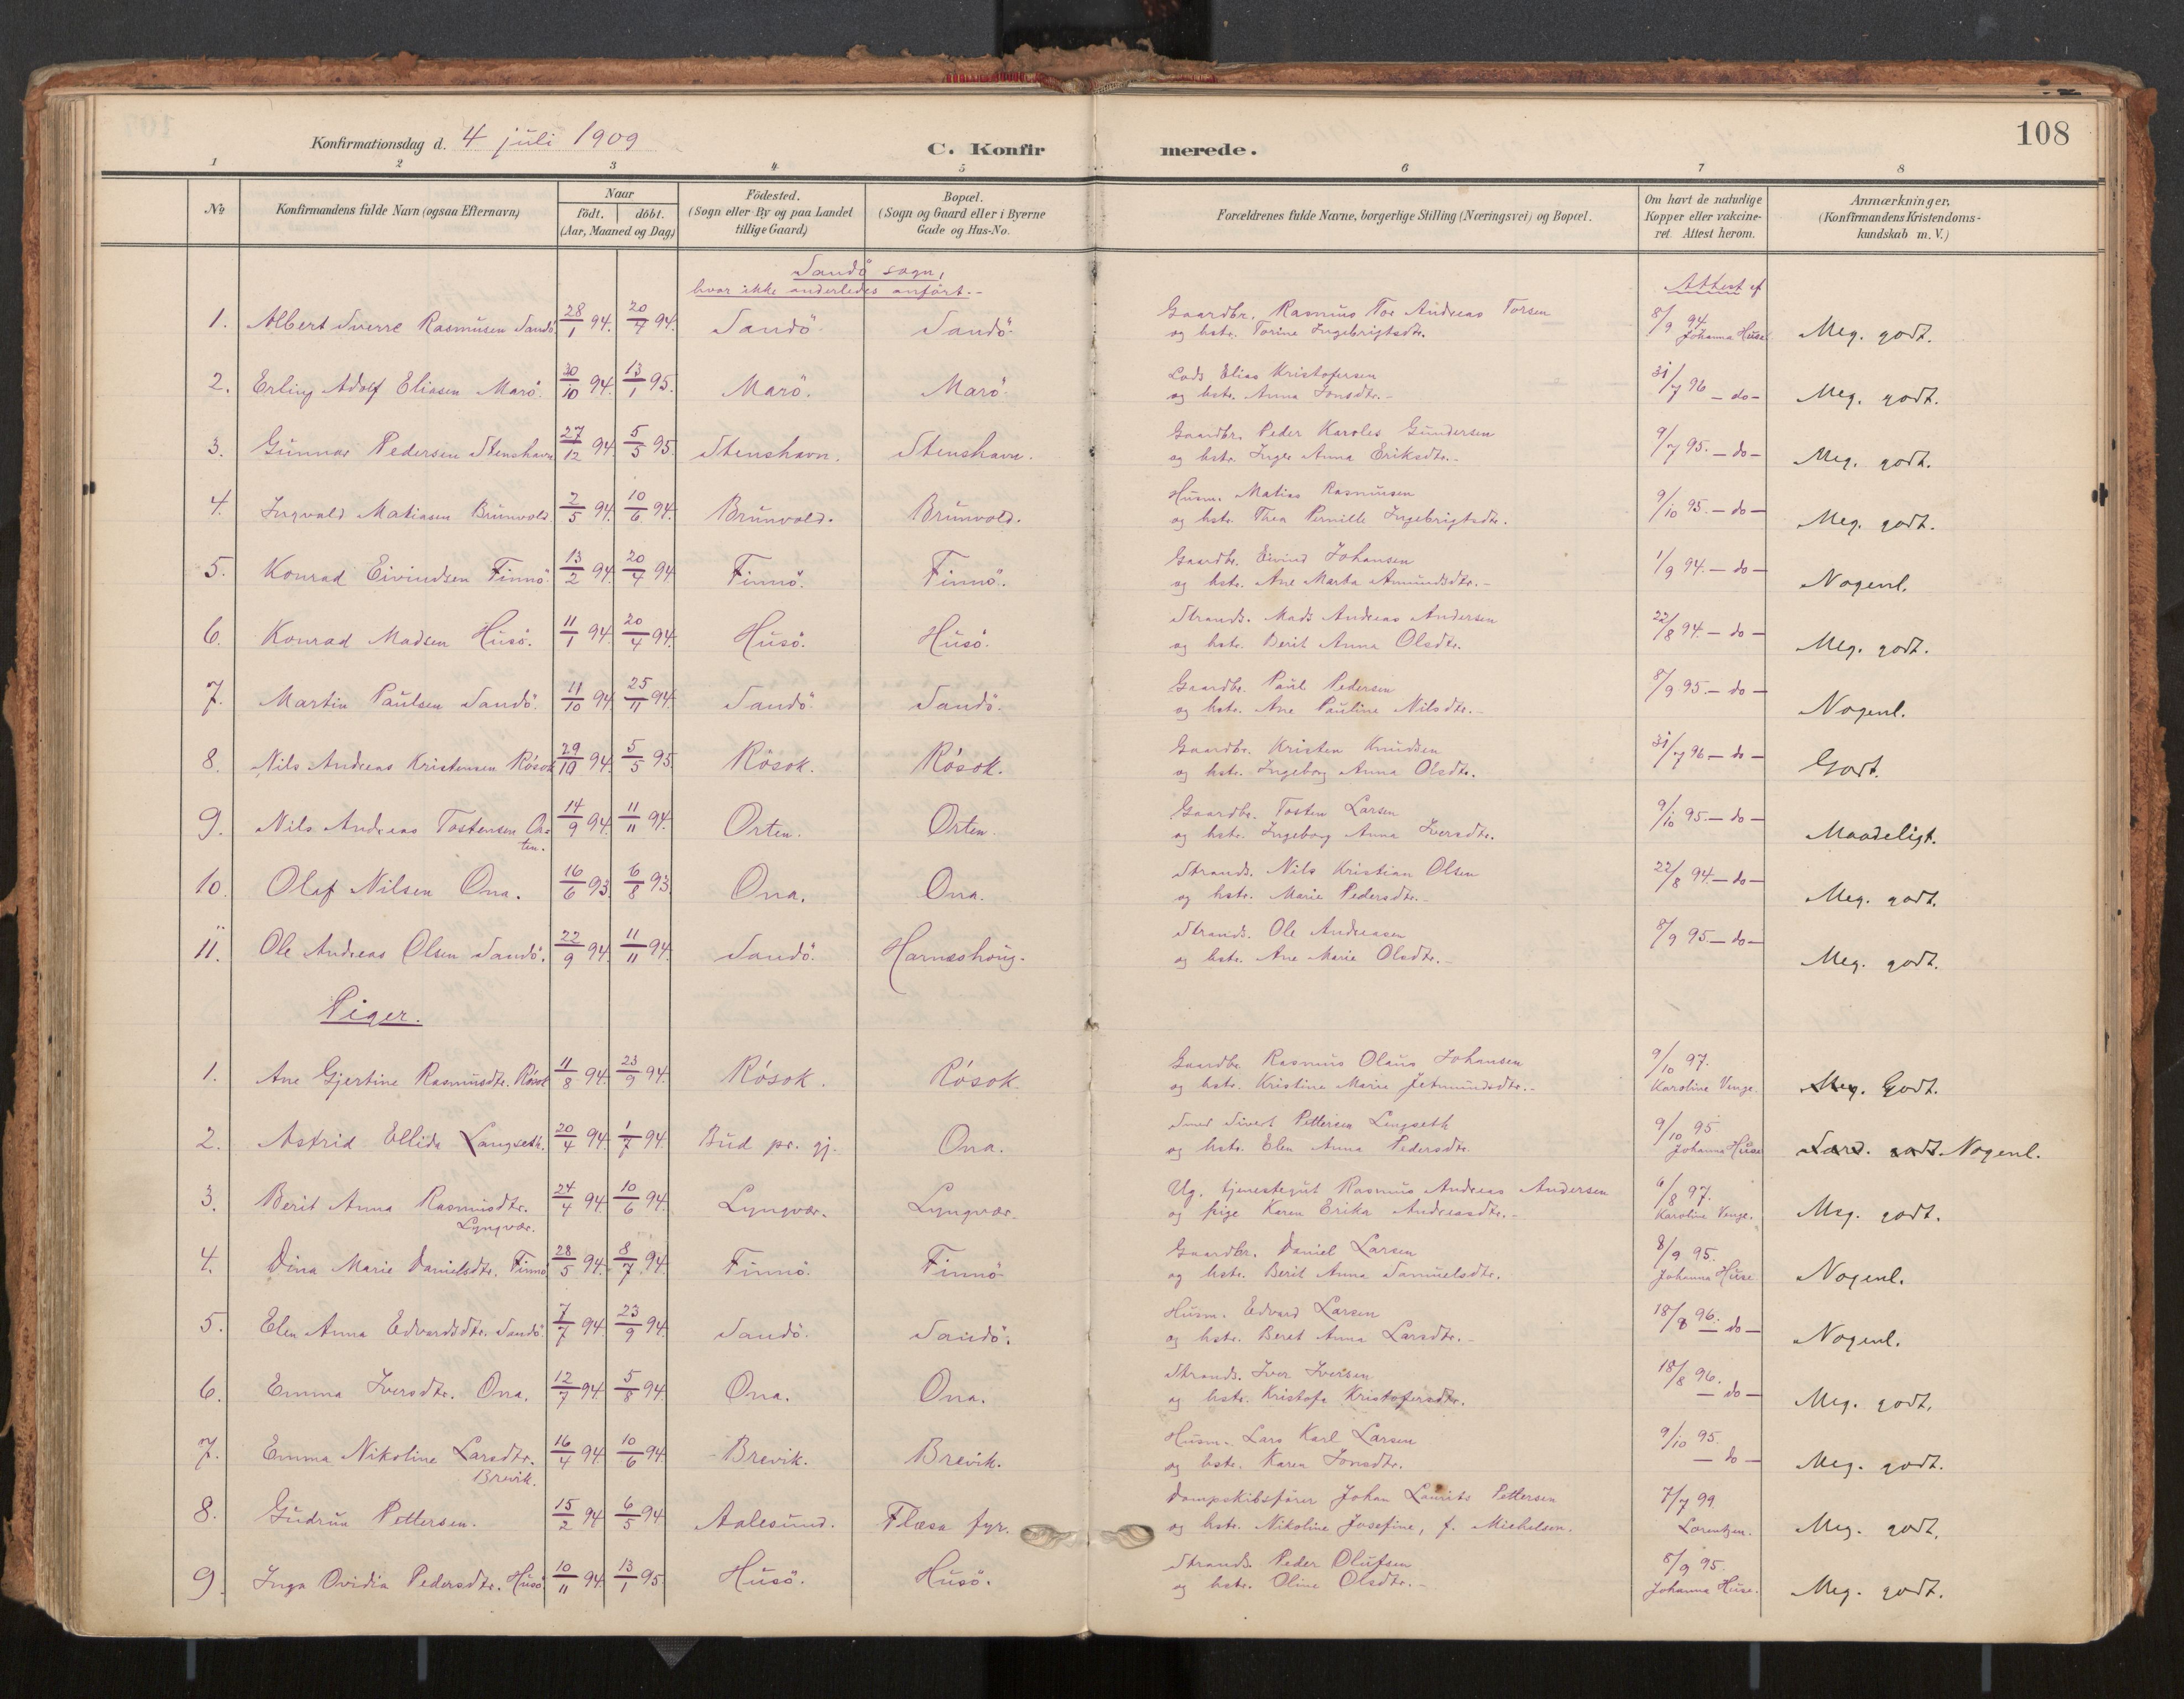 108
Konfirmationsdag d. 4 juli 1909
C. Konfirmerede.
1 2 3 4 5 6 7 8
No
Konfirmandens fulde Navn (ogsaa Efternavn)
Naar
født. | döbt.
(Aar, Maaned og Dag)
Födested.
(Sogn eller By og paa Landet
tillige Gaard)
Bopæl.
(Sogn og Gaard eller i Byerne
Gade og Hus-No.
Forældrenes fulde Navne, borgerlige Stilling (Næringsvei) og Bopæl.
Om havt de naturlige
Kopper eller vakcine-
ret. Attest herom.
Anmærkninger.
(Konfirmandens Kristendoms-
kundskab m. V.)
Sandö sogn,
hvor ikke anderledes anfört.-
Attest af
1. Albert Sverre Rasmusen Sandö 28/1 94. 20/4 94. Sandö. Sandö. Gaardbr. Rasmus Tor Andreas Torsen 8/9 94 Meg. godt.
og hstr. Torine Ingebrigtsdtr. Johanna Huse
2. Erling Adolf Eliasen Marö. 30/10 94. 13/1 95. Marö. Marö. Lods Elias Kristofersen 31/7 96 - do - Meg. godt.
og hstr. Anna Jonsdtr.-
3. Gunnar Pedersen Stenshavn 27/12 94. 5/5 95. Stenshavn. Stenshavn. Gaardbr. Peder Karoles Gundersen 9/7 95. - do - Meg. godt.
og hstr. Inger Anna Eriksdtr.-
4. Ingvald Matiasen Brunvold 2/5 94. 10/6 94. Brunvold. Brunvold. Husm. Matias Rasmusen 9/10 95. - do - Meg. godt.
og hstr. Thea Pernille Ingebrigtsdtr.
5. Konrad Eivindsen Finnö. 13/2 94. 20/4 94 Finnö. Finnö. Gaardbr. Eivind Johansen 1/9 94. - do - Nogenl.
og hstr. Ane Marta Amundsdtr.-
6. Konrad Madsen Husö. 11/1 94. 20/4 94. Husö. Husö. Strands. Mads Andreas Andersen 22/8 94. - do - Meg. godt.
og hstr. Berit Anna Olsdtr.
7. Martin Paulsen Sandö. 11/10 94 25/11 94. Sandö. Sandö. Gaardbr. Paul Pedersen 8/9 95. - do - Nogenl.
og hstr. Ane Pauline Nilsdtr.-
8. Nils Andreas Kristensen Rösok 29/10 94. 5/5 95 Rösok. Rösok. Gaardbr. Kristen Knudsen 31/7 96 - do - Godt.
og hstr. Ingeborg Anna Olsdtr.
9. Nils Andreas Tostensen Or= 14/9 94. 11/11 94. Orten. Orten. Gaardbr. Tosten Larsen 9/10 95. - do - Maadeligt.
ten. og hstr. Ingeborg Anna Iversdtr.
10. Olaf Nilsen Ona. 16/6 93. 6/8 93. Ona. Ona. Strands. Nils Kristian Olsen 22/8 94. - do - Meg. godt.
og hstr. Marie Pedersdtr.-
11. Ole Andreas Olsen Sandö. 22/9 94. 11/11 94. Sandö. Harneshöug. Strands. Ole Andreasen 8/9 95. - do - Meg. godt.
og hstr. Ane Marie Olsdtr.-
Piger.
1. Ane Gjertine Rasmusdtr. Rösok 11/8 94. 23/9 94. Rösok. Rösok. Gaardbr. Rasmus Olaus Johansen 9/10 97. Meg. Godt.
og hstr. Kristine Marie Jetmundsdtr.- Karoline Venge.
2. Astrid Ellida Langseth. 20/4 94. 1/7 94. Bud pr. gj. Ona. Smed Sivert Pettersen Lengseth 9/10 95 Særd. godt. Nogenl.
og hstr. Elen Anna Pedersdtr. Johanna Huse
3. Berit Anna Rasmusdtr. 24/4 94. 10/6 94. Lyngvær. Lyngvær. Ug. tjenestegut Rasmus Andreas Andersen 6/8 97. Meg. godt.
Lyngvær. og pige Karen Erika Andreasdtr.- Karoline Venge.
4. Dina Marie Danielsdtr. Finnö 28/5 94. 8/7 94. Finnö. Finnö Gaardbr. Daniel Larsen 8/9 95. Nogenl.
og hstr. Berit Anna Samuelsdtr. Johanna Huse
5. Elen Anna Edvardsdtr. Sandö. 7/7 94. 23/9 94. Sandö. Sandö. Husm. Edvard Larsen 18/8 96. - do - Nogenl.
og hstr. Beret Anna Larsdtr.-
6. Emma Iversdtr. Ona. 12/7 94. 5/8 94. Ona. Ona. Strands. Iver Iversen 18/8 96. - do - Meg. godt.
og hstr. Kristofa Kristofersdtr.
7. Emma Nikoline Larsdtr. 16/4 94. 10/6 94. Brevik. Brevik. Husm. Lars Karl Larsen 9/10 95. - do - Meg. godt.
Brevik. og hstr. Karen Jonsdtr.
8. Gudrun Pettersen. 15/2 94 6/5 94 Aalesund. Flæsa fyr. Dampskibsfører Johan Laurits Pettersen 7/7 99 Meg. godt.
og hstr. Nikoline Josefine, f. Michelsen. Lorentzen.
9. Inga Ovidia Pedersdtr. Husö. 10/11 94. 13/1 95. Husö. Husö. Strands. Peder Olufsen 8/9 95. Meg. godt.
og hstr. Oline Olsdtr.- Johanna Huse.